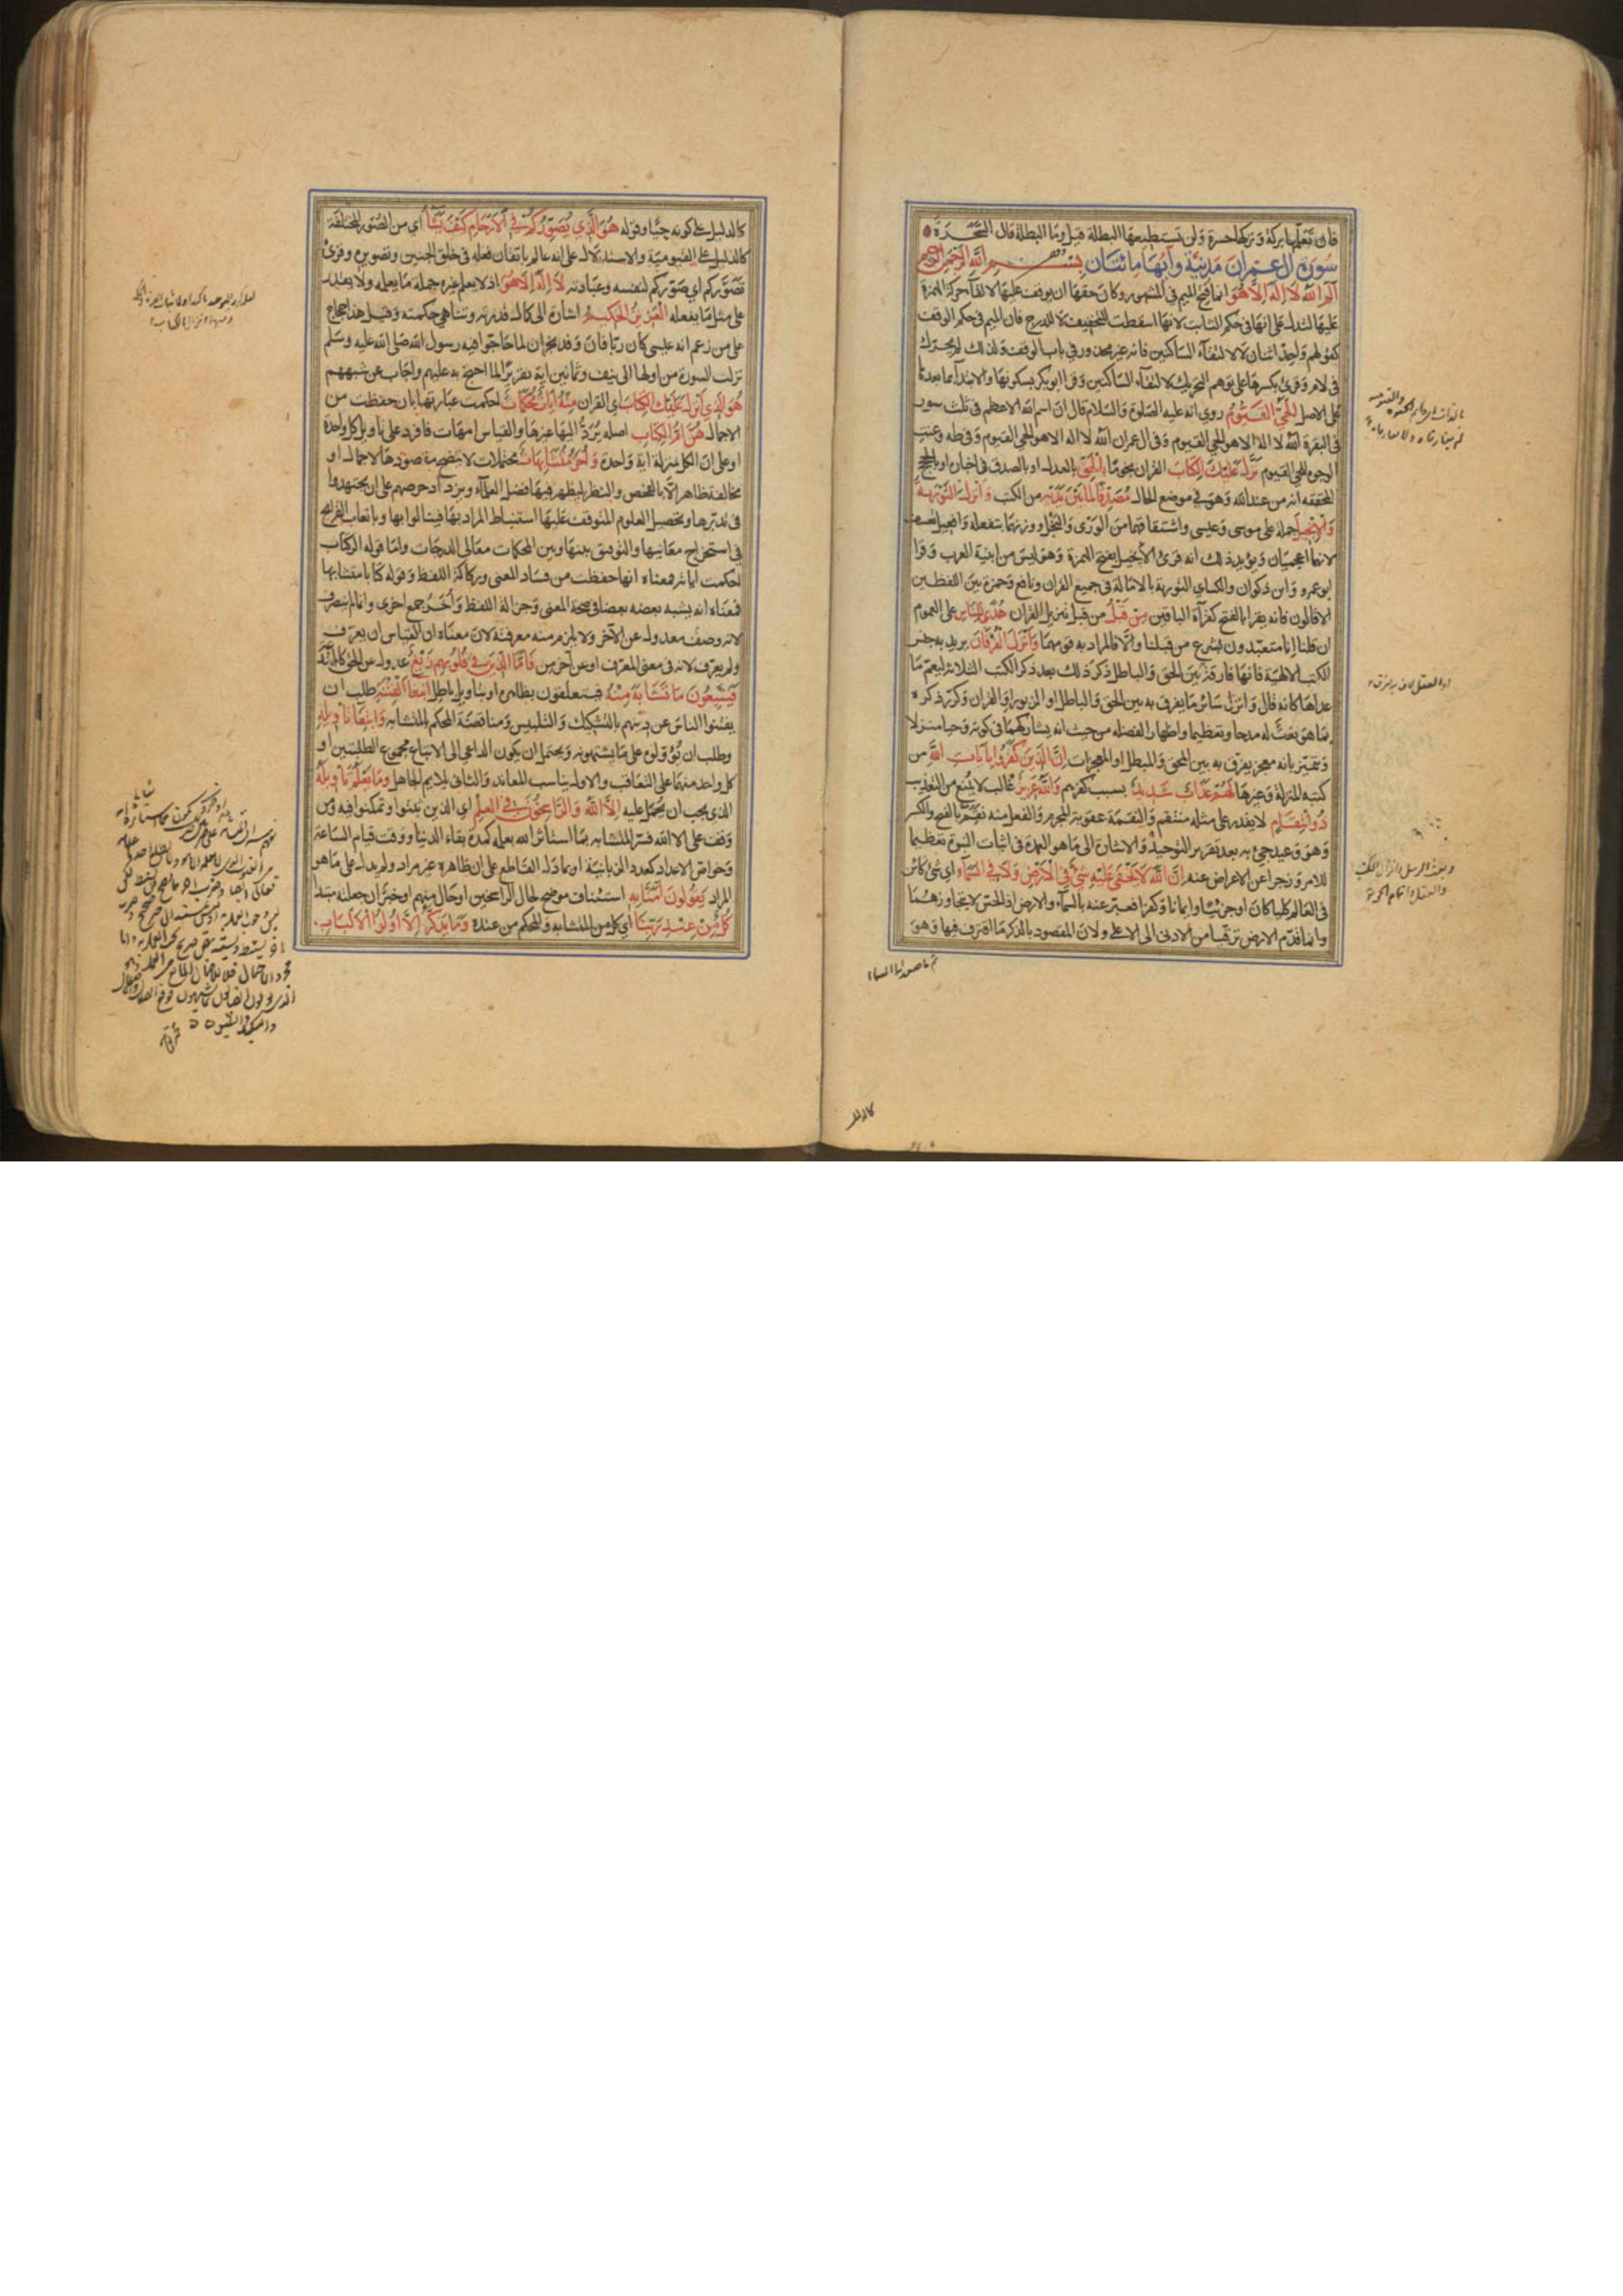 فان تعلمها بركة وتركها حسرة ولن تستطيعها البطلة قيل وما البطلة قال السحرة
سورة آل عمران مدنية وآيها مائتان بسم الله الرحمن الرحيم
الم الله لا اله الا هو انما فتح الميم في المشهور وكان حقها ان يوقف عليها لالقاء حركة الهمزة
عليها لتدل على انها في حكم الثابت لانها اسقطت للتخفيف لا للدرج فان الميم في حكم الوقف
كقولهم واحد اثنان لا لالتقاء الساكنين فانه غير محذور في باب الوقف ولذلك لم يحرك
في لام وقرئ بكسرها على توهم التحريك لالتقاء الساكنين وقرا ابو بكر بسكونها والابتداء بما بعدها
على الاصل الحي القيوم روي انه عليه الصلوة والسلام قال ان اسم الله الاعظم في ثلث سور
في البقرة الله لا اله الا هو الحي القيوم وفي ال عمران الله لا اله الا هو الحي القيوم وفي طه وعنت
الوجوه للحي القيوم نزل عليك الكتاب القران نجوما بالحق بالعدل او بالصدق في اخباره او بالحجج
المحققة انه من عند الله وهو في موضع الحال مصدقا لما بين يديه من الكتب وانزل التورية
والانجيل جملة على موسى وعيسى واشتقاقهما من الورى والنجل ووزنهما بتفعلة وافعيل تعسف
لانهما اعجميان ويؤيد ذلك انه قرئ الانجيل بفتح الهمزة وهو ليس من ابنية العرب وقرا
ابو عمرو وابن ذكوان والكسائي التورية بالامالة في جميع القران ونافع وحمزة بين اللفظين
الا قالون فانه يقرا بالفتح كقراءة الباقين من قبل من قبل تنزيل القران هدى للناس على العموم
ان قلنا انا متعبدون بشرع من قبلنا والا فالمراد به قومهما وانزل الفرقان يريد به جنس
الكتب الالهية فانها فارقة بين الحق والباطل ذكر ذلك بعد ذكر الكتب الثلاثة ليعم ما
عداها كانه قال وانزل سائر ما يفرق به بين الحق والباطل او الزبور او القران وكرر ذكره
بما هو نعت له مدحا وتعظيما واظهارا لفضله من حيث انه يشاركهما في كونه وحيا منزلا
ويتميز بانه معجز يفرق به بين المحق والمبطل او المعجزات ان الذين كفروا بايات الله من
كتبه المنزلة وغيرها لهم عذاب شديد بسبب كفرهم والله عزيز غالب لا يمنع من التعذيب
ذو انتقام لا يقدر على مثله منتقم والنقمة عقوبة المجرم والفعل منه نقم بالفتح والكسر
وهو وعيد جئ به بعد تقرير التوحيد والاشارة الى ما هو العمدة في اثبات النبوة تعظيما
للامر وزجرا عن الاعراض عنه ان الله لا يخفى عليه شئ في الارض ولا في السماء اي شئ كائن
في العالم كليا كان او جزئيا وايمانا وكفرا فعبر عنه بالسماء والارض اذ الحس لا يتجاوزهما
وانما قدم الارض ترقيا من الادنى الى الاعلى ولان المقصود بالذكر ما اقترف فيها وهو
كالدليل
كالدليل على كونه حيا وقوله هو الذي يصوركم في الارحام كيف يشاء اي من الصور المختلفة
كالدليل على القيومية والاستدلال على انه عالم باتقان فعله في خلق الجنين وتصويره وقرئ
تصوركم اي صوركم لنفسه وعبادته لا اله الا هو اذ لا يعلم غيره جملة ما يعلمه ولا يقدر
على مثل ما يفعله العزيز الحكيم اشارة الى كمال قدرته وتناهي حكمته وقيل هذا حجاج
على من زعم انه عيسى كان ربا فان وفد نجران لما حاجوا فيه رسول الله صلى الله عليه وسلم
نزلت السورة من اولها الى نيف وثمانين اية تقريرا لما احتج به عليهم واجاب عن شبههم
هو الذي انزل عليك الكتاب اي القران منه ايات محكمات احكمت عبارتها بان حفظت من
الاجمال هن ام الكتاب اصله يرد اليها غيرها والقياس امهات فافرد على تاويل كل واحدة
او على ان الكل بمنزلة اية واحدة واخر متشابهات محتملات لا يتضح مقصودها لاجمال او
مخالفة ظاهر الا بالفحص والنظر ليظهر فيها فضل العلماء ويزداد حرصهم على ان يجتهدوا
في تدبرها وتحصيل العلوم المتوقف عليها استنباط المراد بها فينالوا بها وباتعاب القرائح
في استخراج معانيها والتوفيق بينها وبين المحكمات معالى الدرجات واما قوله الر كتاب
احكمت اياته فمعناه انها حفظت من فساد المعنى وركاكة اللفظ وقوله كتابا متشابها
فمعناه انه يشبه بعضه بعضا في صحة المعنى وجزالة اللفظ وأخر جمع اخرى وانما لم ينصرف
لانه وصف معدول عن الآخر ولا يلزم منه معرفته لان معناه ان القياس ان يعرف
ولم يعرف لانه في معنى المعرف او عن آخر من فاما الذين في قلوبهم زيغ عدول عن الحق كالمبتدعة
فيتبعون ما تشابه منه فيتعلقون بظاهره او بتاويل باطل ابتغاء الفتنة طلب ان
يفتنوا الناس عن دينهم بالتشكيك والتلبيس ومناقضة المحكم بالمتشابه وابتغاء تاويله
وطلب ان يؤولوه على ما يشتهونه ويحتمل ان يكون الداعي الى الاتباع مجموع الطلبتين او
كل واحد منهما على التعاقب والاول يناسب المعاند والثاني يلايم الجاهل وما يعلم تاويله
الذي يجب ان يحمل عليه الا الله والراسخون في العلم اي الذين ثبتوا وتمكنوا فيه ومن
وقف على الا الله فسر المتشابه بما استاثر الله بعلمه كمدة بقاء الدنيا ووقت قيام الساعة
وخواص الاعداد كعدد الزبانية او بما دل القاطع على ان ظاهره غير مراد ولم يدل على ما هو
المراد يقولون آمنا به استئناف موضح لحال الراسخين او حال منهم او خبر ان جعلته مبتدا
كل من عند ربنا اي كل من المتشابه والمحكم من عنده وما يذكر الا اولوا الالباب